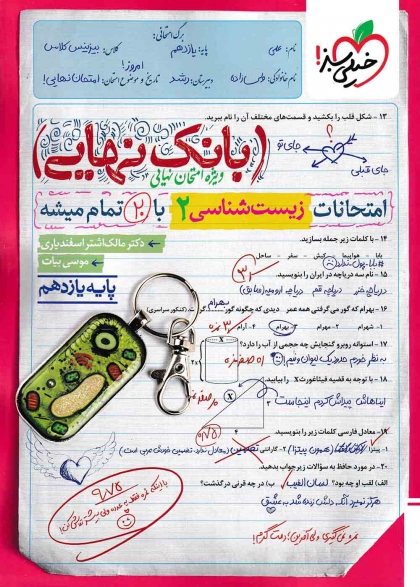 خیلی سبز!
برگ امتحانی:
نام: علی
پایه: یازدهم
کلاس: بیزینس کلاس
امروز!
نام خانوادگی:
دبیرستان: رشد
تاریخ و موضوع امتحان: امتحان نهایی!
۱۳- شکل قلب را بکشید و قسمت‌های مختلف آن را نام ببرید.
؟
جای تو
جای قبلی
(بانک نهایی)
ویژه امتحان نهایی
امتحانات زیست‌شناسی ۲ با ۲۰ تمام میشه
دکتر مالک‌اشتر اسفندیاری
موسی بیات
پایه یازدهم
۱۴- با کلمات زیر جمله بسازید.
بابا - هواپیما - کیش - سفر - ساحل
بابا پول نداره!
۱۵- نام سه دریاچه در ایران را بنویسید.
۳
دریاچه خزر دریاچه قم دریاچه ارومیه (سابق)
۱۶- بهرام که گور می‌گرفتی همه عمر دیدی که چگونه گور بهرام گرفت؟ (کنکور سراسری)
۱- شهرام ۲- بهرام ۳- بهرام ۴- آرام
۳ نمره
۱۷- استوانه روبرو گنجایش چه حجمی از آب را دارد؟
به نظر خودم حدود یک لیوان و نیم!
۱۸- با توجه به قضیه فیثاغورث X را بیابید.
ایناهاش پیداش کردم اینجاست
X
۴
۱۹- معادل فارسی کلمات زیر را بنویسید.
۱- پیتزا (همون پیتزا) ۲- گارانتی تضمین
۲۰- در مورد حافظ به سؤالات زیر جواب بدهید.
الف) لقب او چه بود؟ لسان‌الغیب ب) در چه قرنی درگذشت؟
هرگز نمیرد آنکه دلش زنده شد به عشق
۹/۷۵